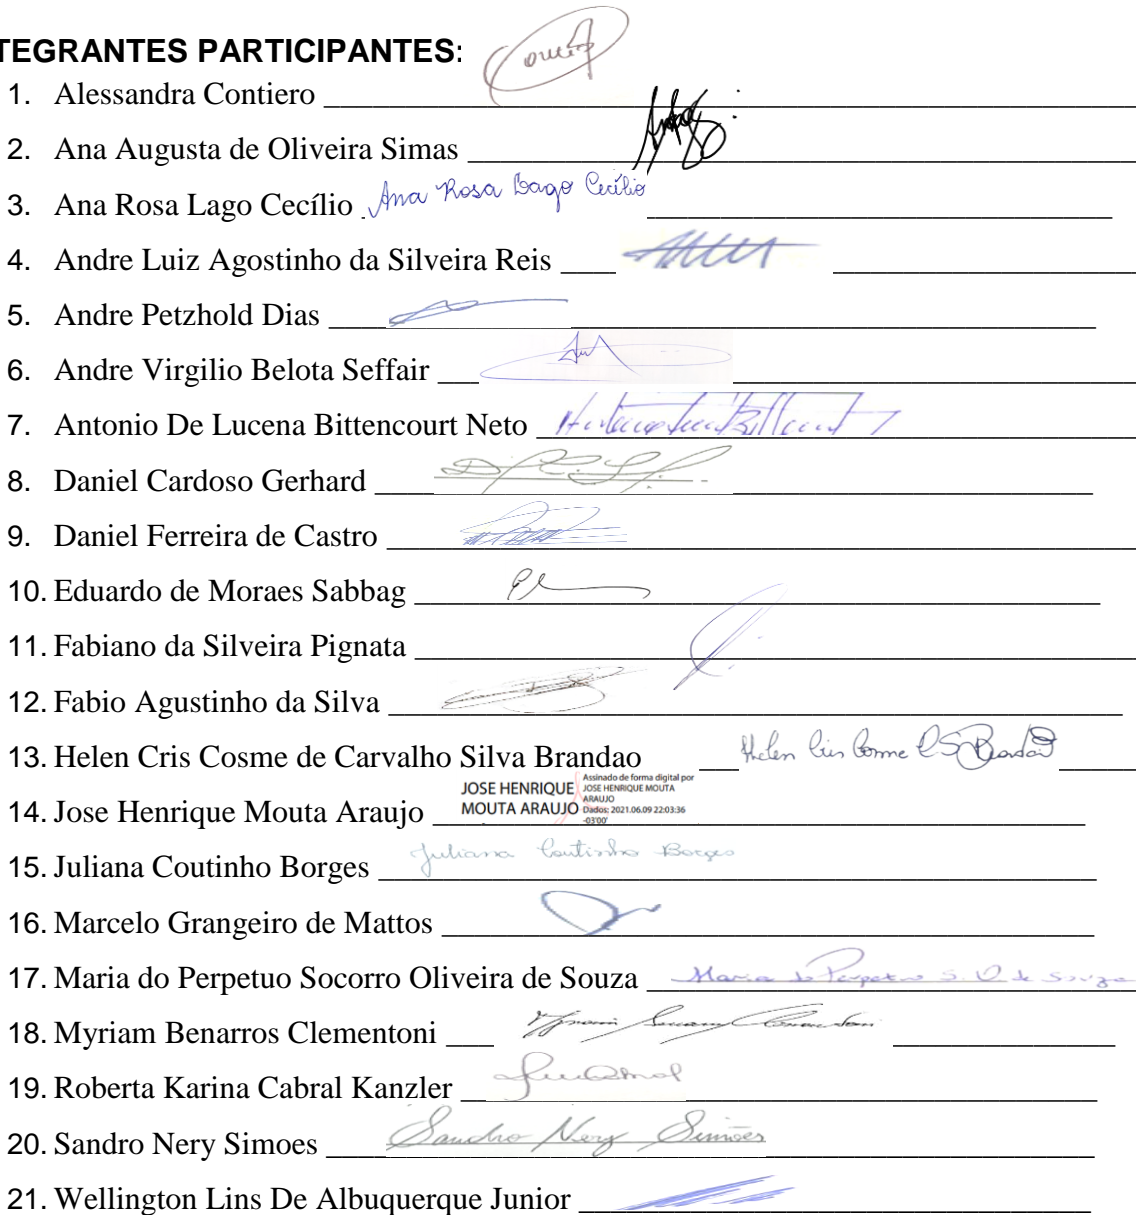 TEGRANTES PARTICIPANTES:
1. Alessandra Contiero
2. Ana Augusta de Oliveira Simas
3. Ana Rosa Lago Cecílio Ana Rosa Lago Cecílio
4. Andre Luiz Agostinho da Silveira Reis
5. Andre Petzhold Dias
6. Andre Virgilio Belota Seffair
7. Antonio De Lucena Bittencourt Neto
8. Daniel Cardoso Gerhard
9. Daniel Ferreira de Castro
10. Eduardo de Moraes Sabbag
11. Fabiano da Silveira Pignata
12. Fabio Agustinho da Silva
13. Helen Cris Cosme de Carvalho Silva Brandao Helen Cris Cosme C S Brandão
14. Jose Henrique Mouta Araujo JOSE HENRIQUE MOUTA ARAUJO Assinado de forma digital por JOSE HENRIQUE MOUTA ARAUJO Dados: 2021.06.09 22:03:36 -03'00'
15. Juliana Coutinho Borges Juliana Coutinho Borges
16. Marcelo Grangeiro de Mattos
17. Maria do Perpetuo Socorro Oliveira de Souza Maria do Perpetuo S. O de Souza
18. Myriam Benarros Clementoni
19. Roberta Karina Cabral Kanzler
20. Sandro Nery Simoes Sandro Nery Simões
21. Wellington Lins De Albuquerque Junior